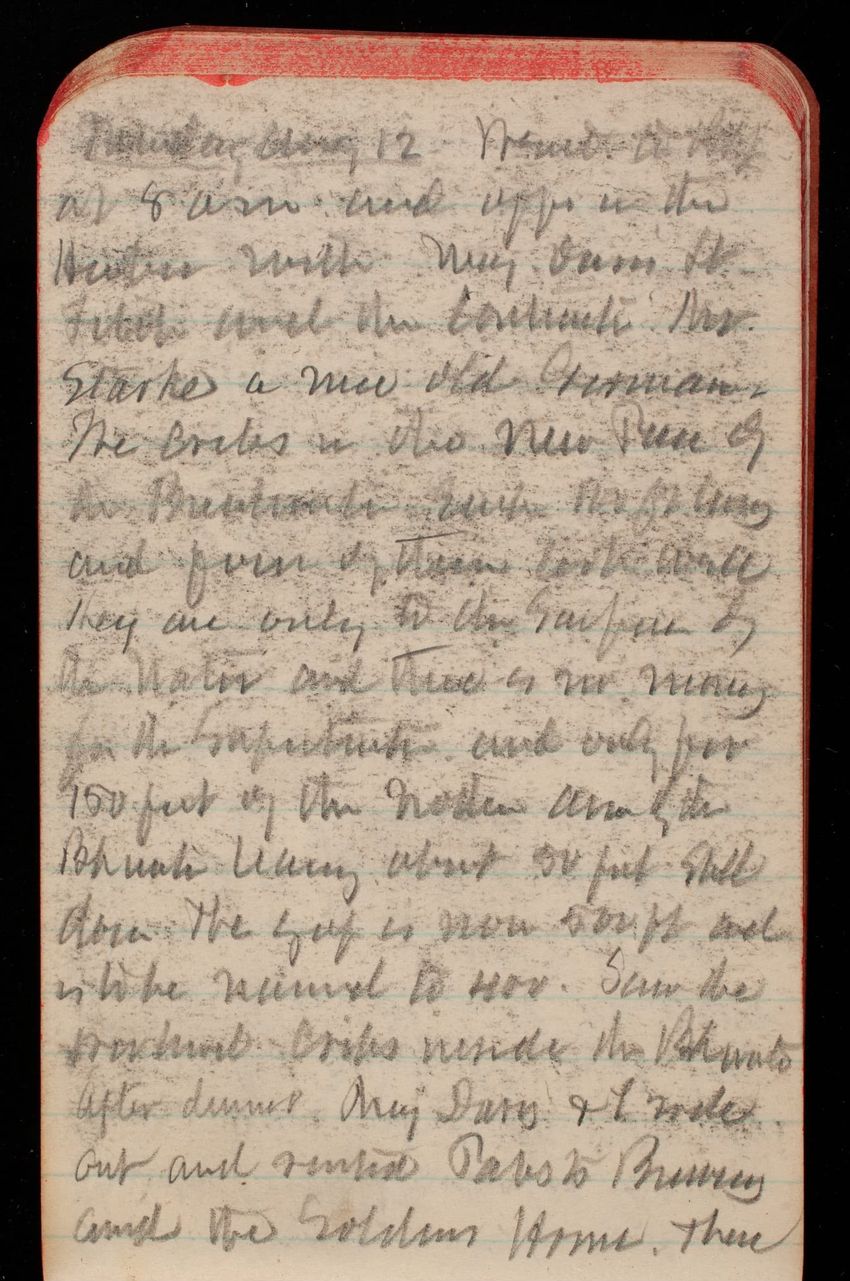 Tuesday Aug 12 Went to
at 8 am and off in the
with Maj Davis Lt.
and the Mr.
Starke a nice old German.
The Cribs in the New Pier of
the Breakwater long
and four of them
they are only to the Surface of
the Water and there is no money
for the Superstructure and only for
150 feet of the arm of the
Bkwater leaving about 50 feet Still
The gap is now 500 ft and
is to be to 400. Saw the
Cribs inside the Bkwater
After dinner Maj Davis & I rode
out and visited Pabsts Brewery
and the Soldiers Home. There